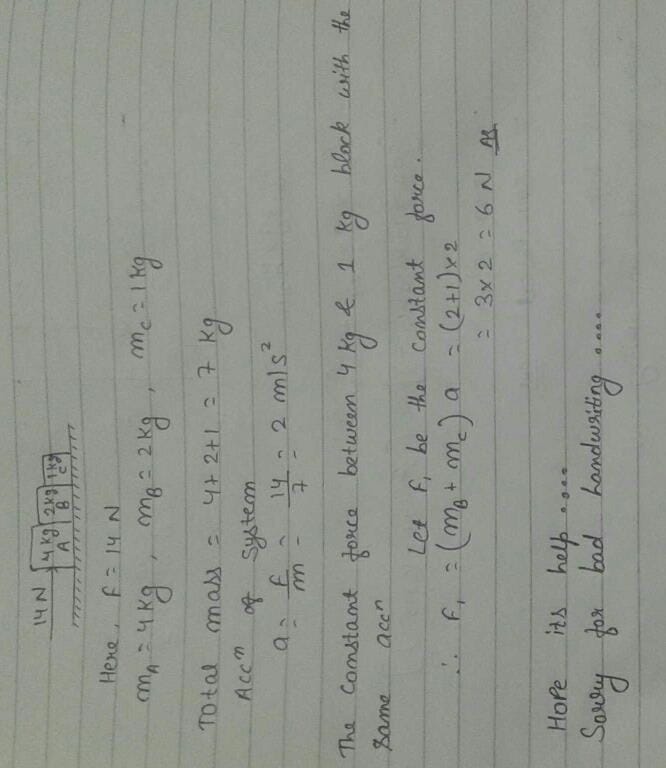 14 N 4 kg 2 kg 1 kg
A B C
Here, F = 14 N
mA = 4 kg , mB = 2 kg , mC = 1 kg
Total mass = 4 + 2 + 1 = 7 kg
Accn of System
a = F/m = 14/7 = 2 m/s²
The Constant force between 4 kg & 1 kg block with the
Same accn
Let F1 be the constant force.
∴ F1 = (mB + mC) a = (2+1) × 2
= 3 × 2 = 6 N
Hope its help ....
Sorry for bad handwriting ....